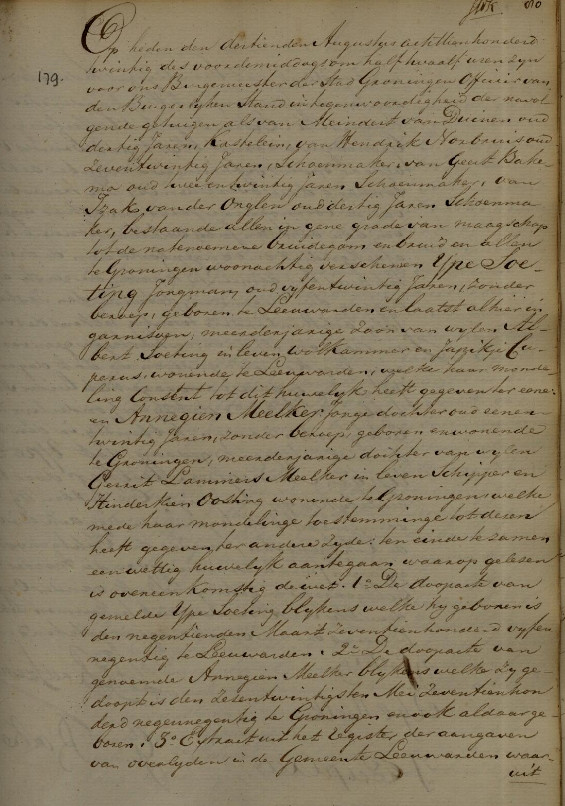 179.
Op heden den dertienden Augustus achttienhonderd
twintig des voordemiddags om half twaalf uren zyn
voor ons Burgemeester der Stad Groningen Officier van
den Burgerlyken Stand in tegenwoordigheid der navol
gende getuigen als van Meindert van Duinen oud
dertig Jaren, Kastelein, van Hendrik Norbruis oud
zeventwintig Jaren, Schoenmaker, van Geert Bake-
ma oud twee en twintig Jaren Schoenmaker, van
Izak van der Onglen oud dertig Jaren Schoenma
ker, bestaande allen in gene grade van maagschap
tot de natenoemene bruidegom en bruid en allen
te Groningen woonachtig verschenen Ype Soe-
ting Jongman, oud vyfentwintig Jaren, zonder
beroep, geboren te Leeuwarden en laatst alhier in
garnisoen, meerderjarige zoon van wylen Al-
bert Soeting in leven wolkammer en Japikje Cu-
perus, wonende te Leeuwarden, welke haar monde-
ling Consent tot dit huwelyk heeft gegeven ter eene:
en Annegien Meelker jonge dochter oud eenen
twintig Jaren, zonder beroep, geboren en wonende
te Groningen, meerderjarige dochter van wylen
Gerrit Lammers Meelker in leven Schipper en
Hinderkien Oosting wonende te Groningen welke
mede haar mondelinge toestemminge tot dezen
heeft gegeven ter andere zyde: ten einde te zamen
een wettig huwelyk aantegaan waarop gelesen
is overeenkomstig de wet. 1o De doopacte van
gemelde Ype Soeting blykens welke hy geboren is
den negentienden Maart zeventienhonderd vyfen
negentig te Leeuwarden. 2o De doopacte van
genoemde Annegien Meelker blykens welke zy ge-
doopt is den zeventwintigsten Mei zeventienhon
derd negennegentig te Groningen en ook aldaar ge-
boren. 3o Extract uit het register der aangaven
van overlyden in de Gemeente Leeuwarden waar-
uit